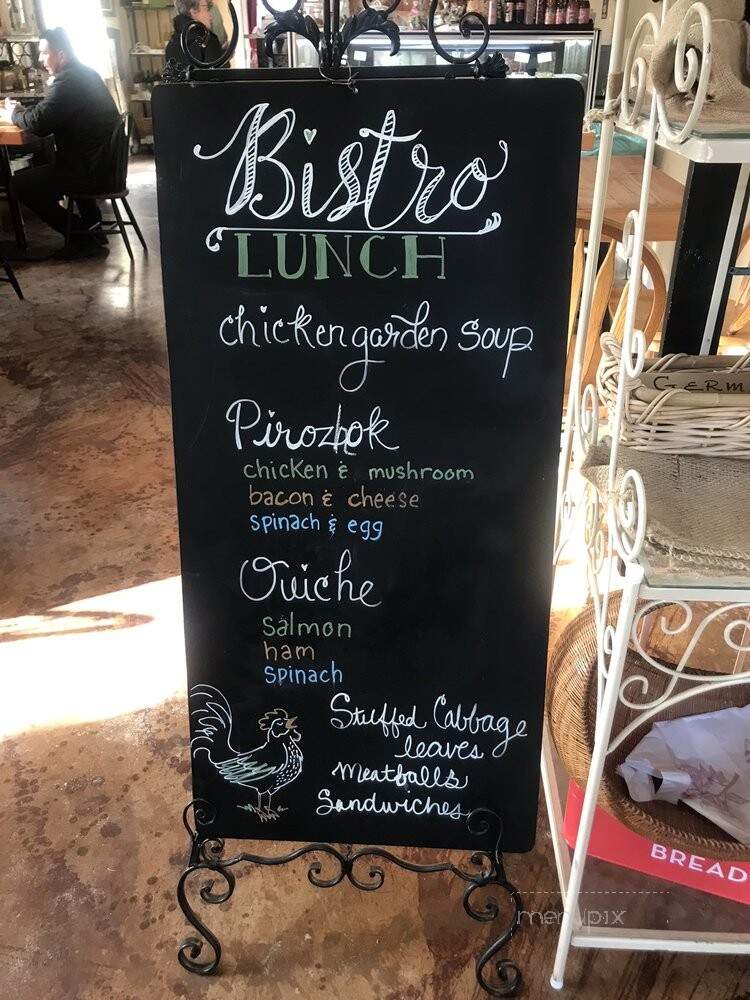 Bistro
LUNCH
chicken garden soup
Pirozhok
chicken & mushroom
bacon & cheese
spinach & egg
Quiche
salmon
ham
spinach
Stuffed Cabbage
leaves
Meatballs
Sandwiches
GERM
BREAD
menupix